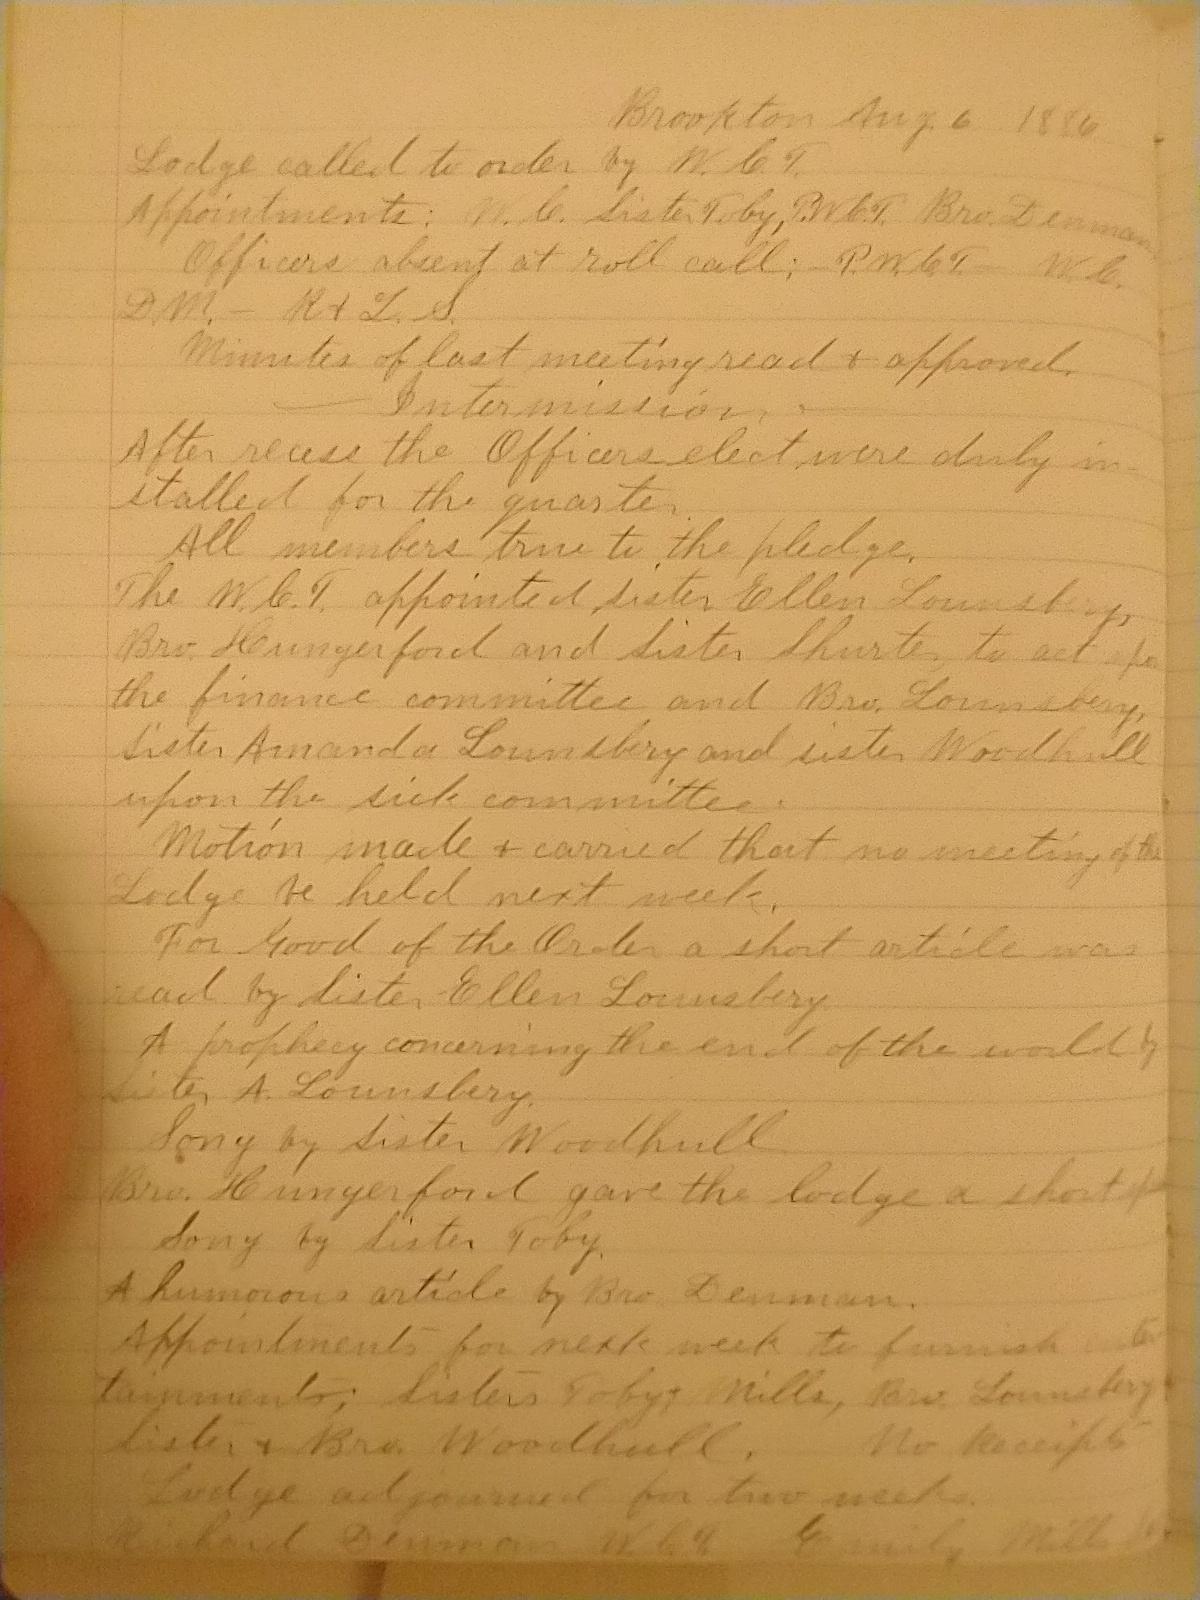 Brookton Aug. 6 1886
Lodge called to order by W.C.T.
Appointments: W.C. Sister Toby, P.W.C.T. Bro. Denman,
Officers absent at roll call; - P.W.C.T. - W.C.
D.M. - R + L. S.
Minutes of last meeting read + approved.
— Intermission. —
After recess the Officers elect were duly in-
stalled for the quarter.
All members true to the pledge.
The W.C.T. appointed sister Ellen Lounsbery,
Bro. Hungerford and Sister Shurter to act upon
the finance committee and Bro. Lounsbery,
Sister Amanda Lounsbery and sister Woodhull
upon the sick committee.
Motion made + carried that no meeting of the
Lodge be held next week.
For Good of the Order a short article was
read by Sister Ellen Lounsbery
A prophecy concerning the end of the world by
Sister A. Lounsbery.
Song by Sister Woodhull
Bro. Hungerford gave the lodge a short
Song by Sister Toby.
A humorous article by Bro. Denman.
Appointments for next week to furnish enter
tainments; Sisters Toby, Mills, Bro. Lounsbery
Sister + Bro. Woodhull. No Receipts
Lodge adjourned for two weeks.
Richard Denman W.C.T. Emily Mills